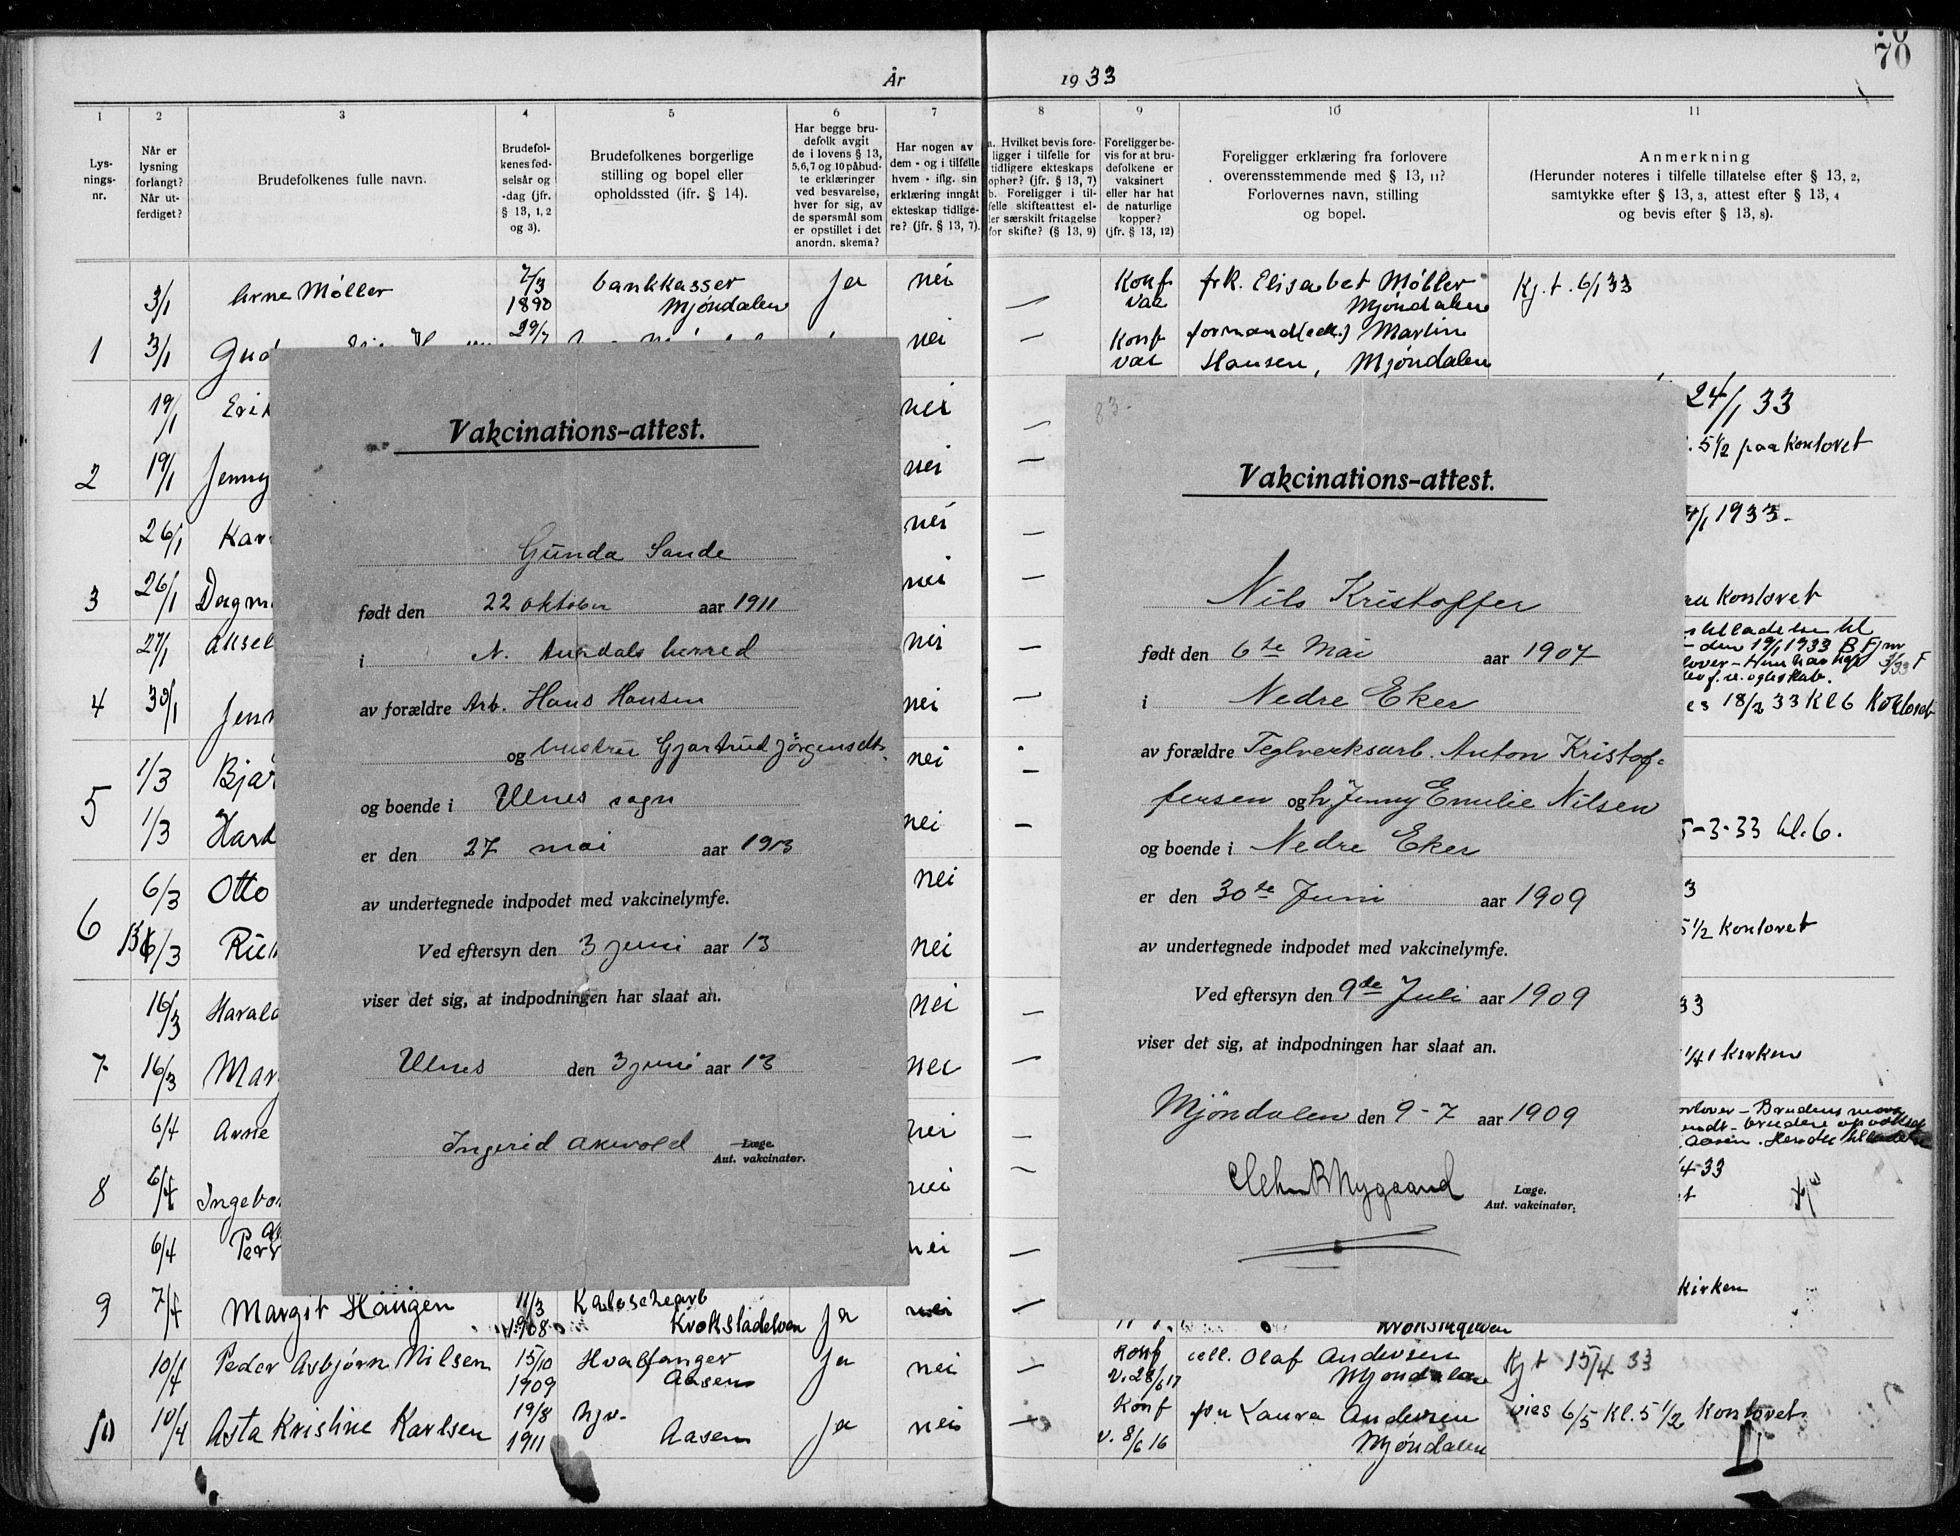 År 1933
70
1 2 3 4 5 6 7 8 9 10 11
Lys-
nings-
nr.
Når er
lysning
forlangt?
Når ut-
ferdiget?
Brudefolkenes fulle navn.
Brudefol-
kenes fød-
selsår og
-dag (jfr.
§ 13, 1, 2
og 3).
Brudefolkenes borgerlige
stilling og bopel eller
opholdssted (ifr. § 14).
Har begge bru-
defolk avgit
de i lovens § 13,
5,6,7 og 10 påbud-
te erklæringer
ved besvarelse,
hver for sig, av
de spørsmål som
er opstillet i det
anordn. skema?
Har nogen av
dem - og i tilfelle
hvem - iflg. sin
erklæring inngått
ekteskap tidlige-
re? (jfr. § 13, 7).
a. Hvilket bevis fore-
ligger i tilfelle for
tidligere ekteskaps
ophør? (jfr. § 13, 7)
b. Foreligger i til-
felle skifteattest el-
ler særskilt fritagelse
for skifte? (§ 13, 9)
Foreligger be-
vis for at bru-
defolkene er
vaksinert
eller har hat
de naturlige
kopper?
(jfr. § 13, 12)
Foreligger erklæring fra forlovere
overensstemmende med § 13, 11?
Forlovernes navn, stilling
og bopel.
Anmerkning
(Herunder noteres i tilfelle tillatelse efter § 13, 2,
samtykke efter § 13, 3, attest efter § 13, 4
og bevis efter § 13, 8).
3/1 Arne Møller 7/3 1890 bankkasser Mjøndalen Ja nei — Konf vac frk. Elisabet Møller Mjøndalen Kj.t. 6/1 33
1 3/1 Gud 29/7 nei — Konf vac formand(ell.) Martin Hansen, Mjøndalen
19/1 Erik nei — 24/1 33
2 19/1 Jenny nei — 5 1/2 paa Kontoret
26/1 Kar nei — 1933.
3 26/1 Dagm nei — Kontoret
27/1 Aksel nei — den 19/1 1933
4 30/1 Jenn nei — 18/2 33 Kl 6 Kontoret
1/3 Bjar nei
5 1/3 Hart nei — 5-3-33 kl. 6.
6/3 Otto nei — 3
6 6/3 Rich nei — 5 1/2 Kontoret
16/3 Harald nei — 33
7 16/3 Mar nei — kirken
6/4 Arne nei — Brudens
8 6/4 Ingebo nei — 4-33
6/4 Per nei —
9 7/4 Margit Haugen 11/3 1908 Kalosjearb Krokstadelven Ja nei — Krokstadelven kirken
10/4 Peder Asbjørn Nilsen 15/10 1909 Hvalfanger Aasen Ja nei — Konf v. 28/6 17 ell. Olaf Andersen Mjøndalen Kj t 15/4 33
10 10/4 Asta Kristine Karlsen 19/8 1911 hjv. Aasen Ja nei — Konf v. 8/6 16 fru Laura Andersen Mjøndalen vies 6/5 Kl. 5 1/2 Kontoret
Vakcinations-attest.
Gunda Sande
født den 22 oktober aar 1911
i N. Aurdals herred
av forældre Arb. Hans Hansen
og hustru Gjertrud Jørgensdt.
og boende i Ulnes sogn
er den 27 mai aar 1913
av undertegnede indpodet med vakcinelymfe.
Ved eftersyn den 3 juni aar 13
viser det sig, at indpodningen har slaat an.
Ulnes den 3 juni aar 13
Ingerid Læge.
Aut. vakcinatør.
83-
Vakcinations-attest.
Nils Kristoffer
født den 6te Mai aar 1907
i Nedre Eker
av forældre Teglverksarb. Anton Kristof-
fersen og h. Jenny Emilie Nilsen
og boende i Nedre Eker
er den 30te Juni aar 1909
av undertegnede indpodet med vakcinelymfe.
Ved eftersyn den 9de Juli aar 1909
viser det sig, at indpodningen har slaat an.
Mjøndalen den 9-7 aar 1909
Nygaard Læge.
Aut. vakcinatør.